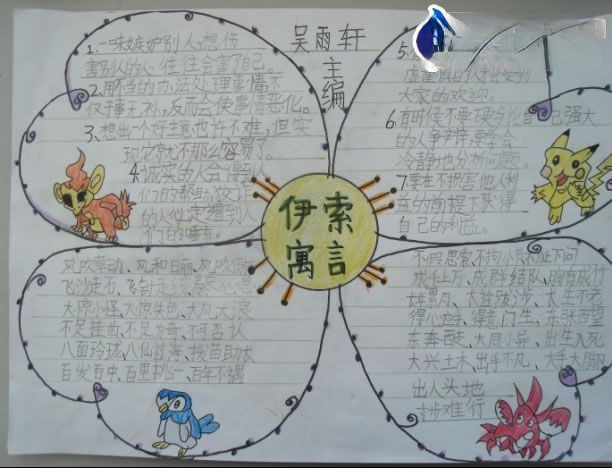 吴雨轩
主编
伊索
寓言
1.一味嫉妒别人,想伤
害别人的人,往往会害了自己。
2.用不当的办法处理事情,不
仅于事无补,反而会使事情恶化。
3、想出一个好主意也许不难,但实
现它就不那么容易了。
4.诚实的人会得到人
们的帮助,
的人会遭到人
们的唾弃。
5.
大家的欢迎。
6.有时候不要硬与比自己强大
的人争辩,要学会
冷静地分析问题。
7.要在不损害他人利
益的前提下获得
自己的利益。
风吹草动、风和日丽、风吹雨
飞沙走石、飞针走线、
大惊小怪、大惊失色、大风大浪
不足挂齿、不足为奇、不可否认
八面玲珑、八仙过海、拔苗助长
百发百中、百里挑一、百年不遇
不假思索、不拘小节、不耻下问
成千上万、成群结队、胸有成竹
得心应手、得意门生、东张西望
东奔西走、大同小异、出生入死
大兴土木、出手不凡、大手大脚
出人头地
寸步难行